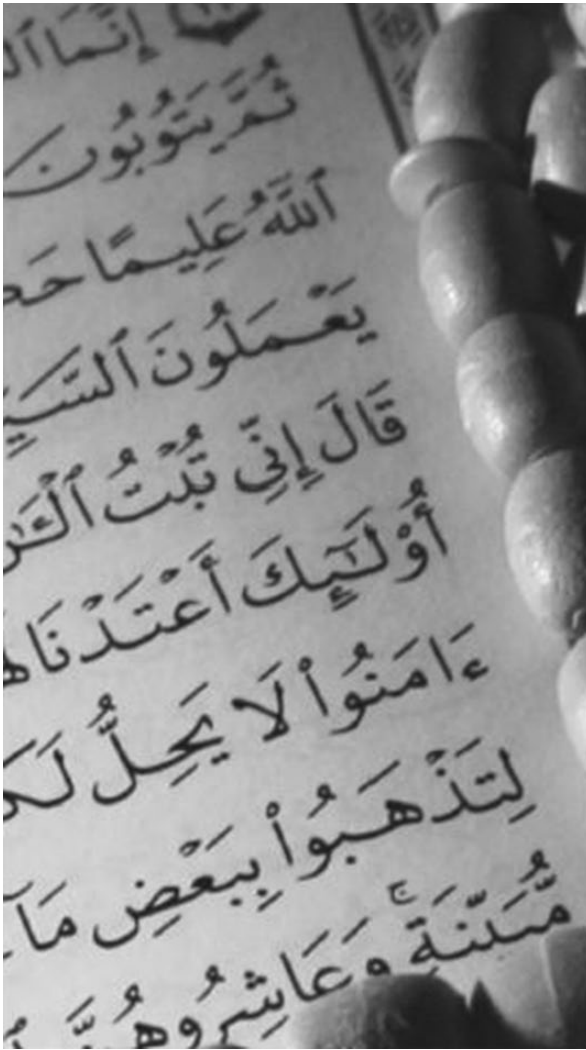 إِنَّمَا
ثُمَّ يَتُوبُونَ
ٱللَّهُ عَلِيمًا
يَعْمَلُونَ
قَالَ إِنِّي تُبْتُ
أُو۟لَـٰٓئِكَ أَعْتَدْنَا
ءَامَنُوا۟ لَا يَحِلُّ
لِتَذْهَبُوا۟ بِبَعْضِ مَآ
مُّبَيِّنَةٍ ۚ وَعَاشِرُوهُنَّ